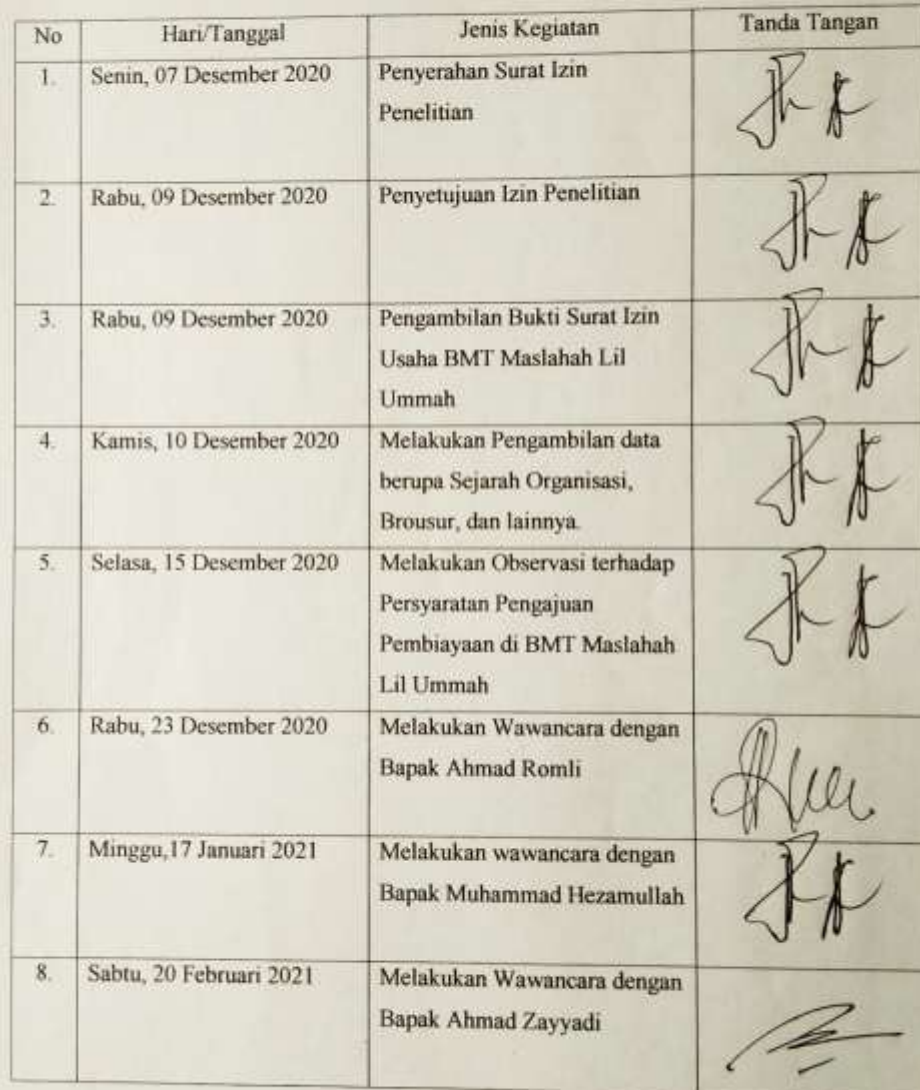 No Hari/Tanggal Jenis Kegiatan Tanda Tangan
1. Senin, 07 Desember 2020 Penyerahan Surat Izin
Penelitian
2. Rabu, 09 Desember 2020 Penyetujuan Izin Penelitian
3. Rabu, 09 Desember 2020 Pengambilan Bukti Surat Izin
Usaha BMT Maslahah Lil
Ummah
4. Kamis, 10 Desember 2020 Melakukan Pengambilan data
berupa Sejarah Organisasi,
Brousur, dan lainnya.
5. Selasa, 15 Desember 2020 Melakukan Observasi terhadap
Persyaratan Pengajuan
Pembiayaan di BMT Maslahah
Lil Ummah
6. Rabu, 23 Desember 2020 Melakukan Wawancara dengan
Bapak Ahmad Romli
7. Minggu,17 Januari 2021 Melakukan wawancara dengan
Bapak Muhammad Hezamullah
8. Sabtu, 20 Februari 2021 Melakukan Wawancara dengan
Bapak Ahmad Zayyadi